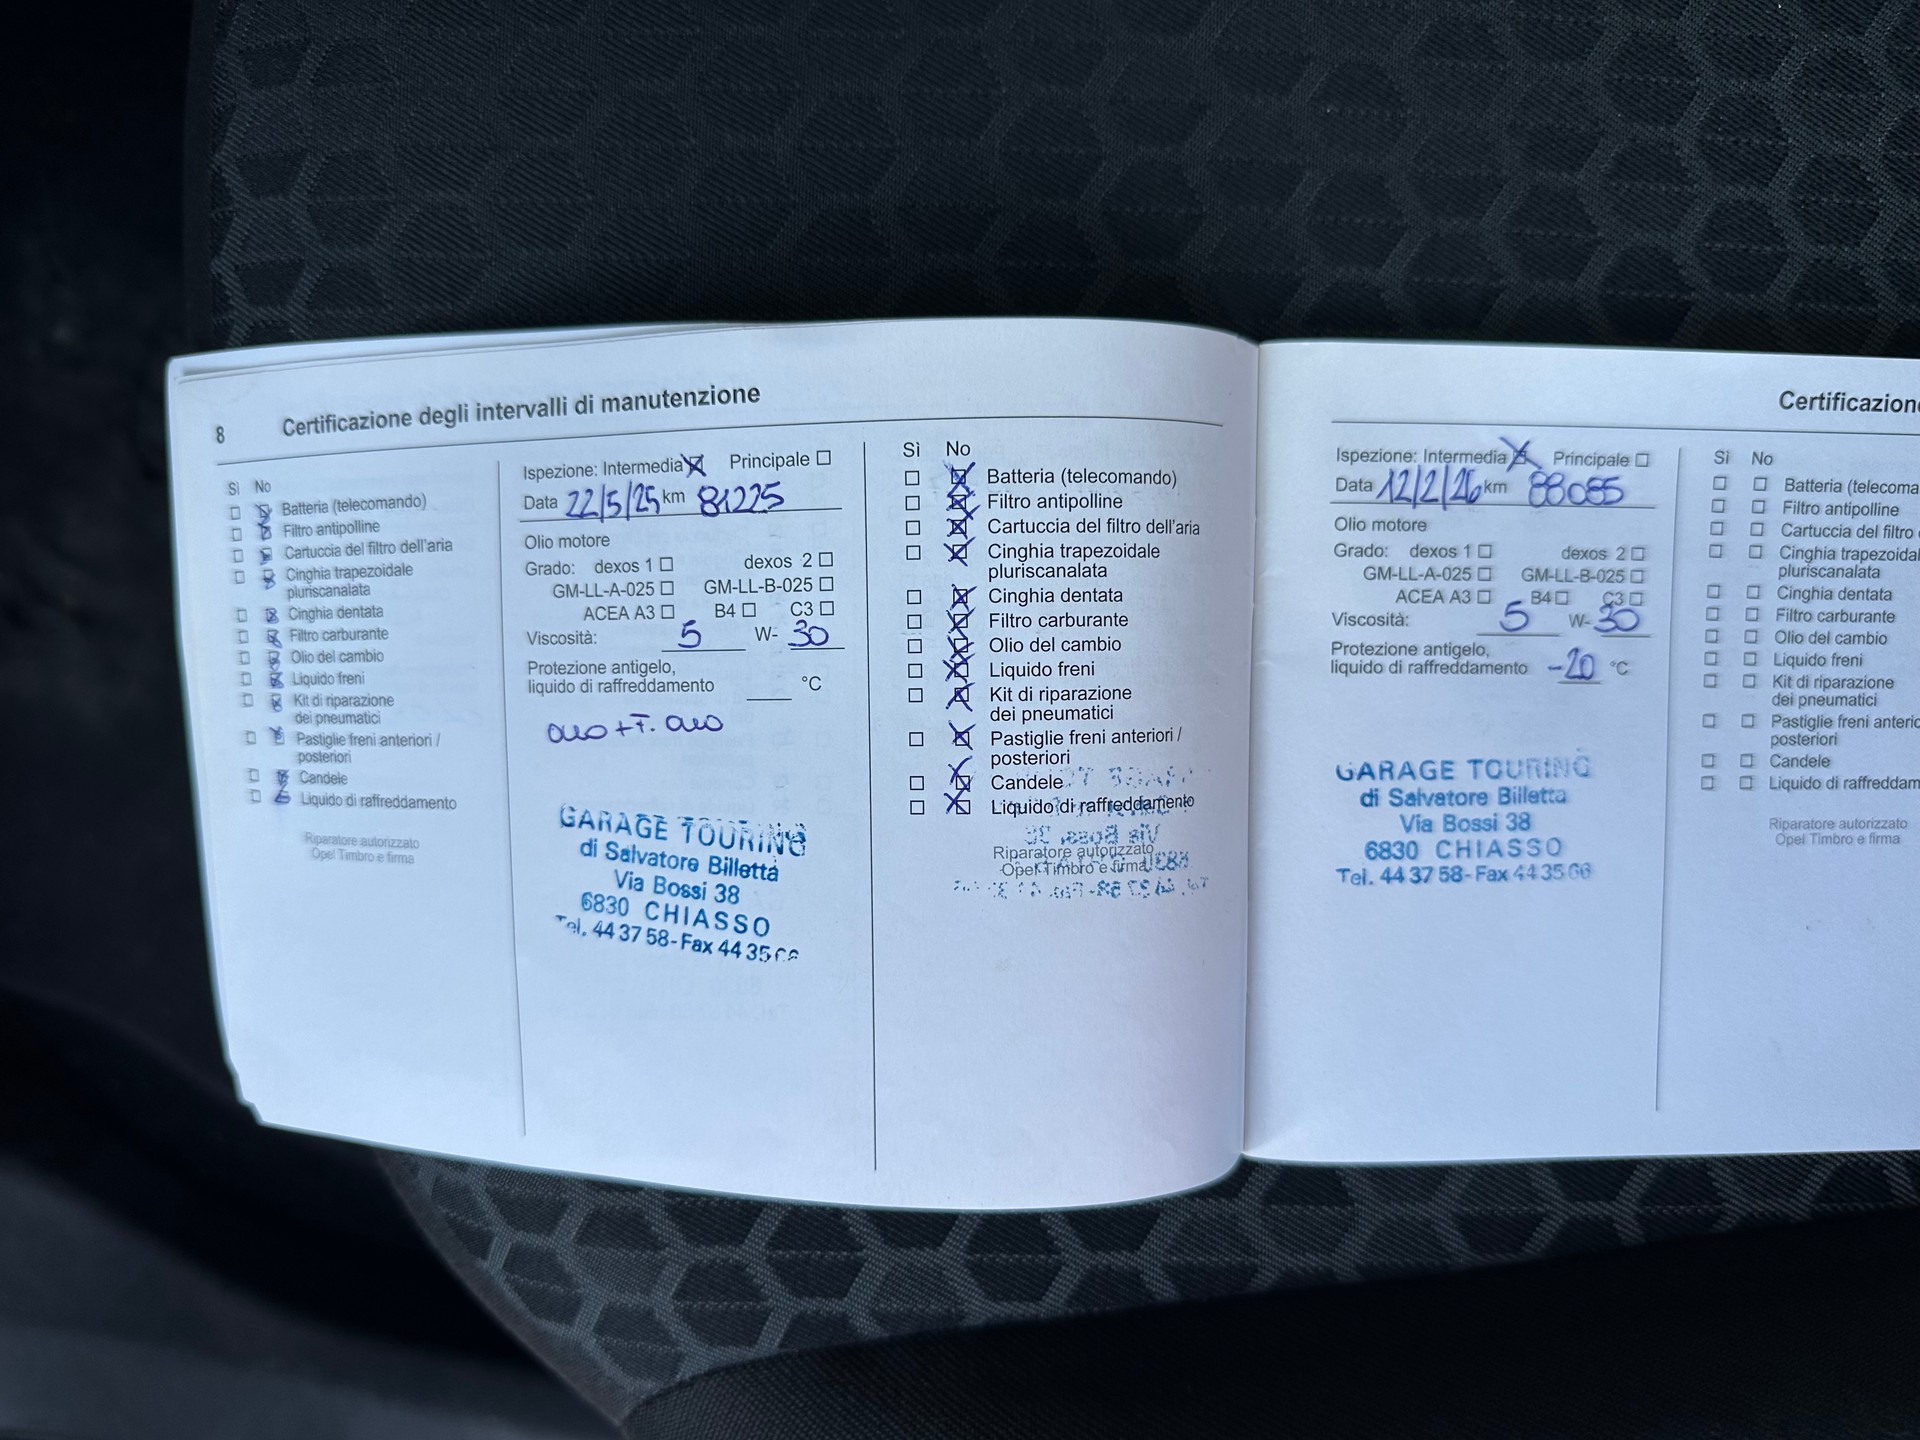 8 Certificazione degli intervalli di manutenzione
Sì No
Batteria (telecomando)
Filtro antipolline
Cartuccia del filtro dell'aria
Cinghia trapezoidale
pluriscanalata
Cinghia dentata
Filtro carburante
Olio del cambio
Liquido freni
Kit di riparazione
dei pneumatici
Pastiglie freni anteriori /
posteriori
Candele
Liquido di raffreddamento
Riparatore autorizzato
Opel Timbro e firma
Ispezione: Intermedia Principale
Data 22/5/25 km 81225
Olio motore
Grado: dexos 1 dexos 2
GM-LL-A-025 GM-LL-B-025
ACEA A3 B4 C3
Viscosità: 5 W- 30
Protezione antigelo,
liquido di raffreddamento °C
GARAGE TOURING
di Salvatore Billetta
Via Bossi 38
6830 CHIASSO
Tel. 44 37 58-Fax 44 35
Sì No
Batteria (telecomando)
Filtro antipolline
Cartuccia del filtro dell'aria
Cinghia trapezoidale
pluriscanalata
Cinghia dentata
Filtro carburante
Olio del cambio
Liquido freni
Kit di riparazione
dei pneumatici
Pastiglie freni anteriori /
posteriori
Candele
Liquido di raffreddamento
Riparatore autorizzato
Opel Timbro e firma
Certificazion
Ispezione: Intermedia Principale
Data 12/2/26 km 88085
Olio motore
Grado: dexos 1 dexos 2
GM-LL-A-025 GM-LL-B-025
ACEA A3 B4 C3
Viscosità: 5 W- 30
Protezione antigelo,
liquido di raffreddamento -20 °C
GARAGE TOURING
di Salvatore Billetta
Via Bossi 38
6830 CHIASSO
Tel. 44 37 58-Fax 44 35 66
Sì No
Batteria (telecoma
Filtro antipolline
Cartuccia del filtro
Cinghia trapezoidal
pluriscanalata
Cinghia dentata
Filtro carburante
Olio del cambio
Liquido freni
Kit di riparazione
dei pneumatici
Pastiglie freni anterio
posteriori
Candele
Liquido di raffreddam
Riparatore autorizzato
Opel Timbro e firma